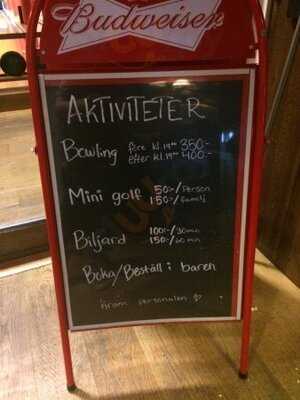 Budweiser
AKTIVITETER
Bowling före kl.19⁰⁰ 350:-
efter kl.19⁰⁰ 400:-
Mini golf 50:-/Person
150:-/Familj
Biljard 100:-/30min
150:-/60 min
Boka/Beställ i baren
Kram personalen ♡